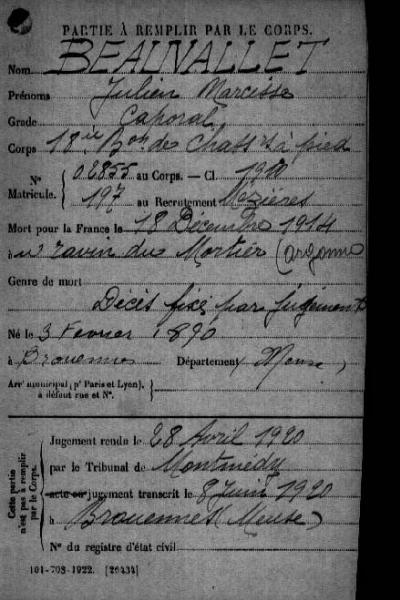 PARTIE À REMPLIR PAR LE CORPS.
Nom BEAUVALLET
Prénoms Julien Narcisse
Grade Caporal
Corps 18me Bon de Chassrs à pied
N° Matricule. { 02855 au Corps. — Cl. 1910
197 au Recrutement Mézières
Mort pour la France le 18 Décembre 1914
à ravin du Mortier (argonne
Genre de mort
Décès fixé par jugement
Né le 3 Février 1890
à Brouennes Département Meuse
Arrt municipal (pr Paris et Lyon), à défaut rue et N°. {
Cette partie n'est pas à remplir par le Corps. { Jugement rendu le 28 Avril 1920
par le Tribunal de Montmédy
acte ou jugement transcrit le 8 Juin 1920
à Brouennes (Meuse)
N° du registre d'état civil
101-708-1922. [26434]